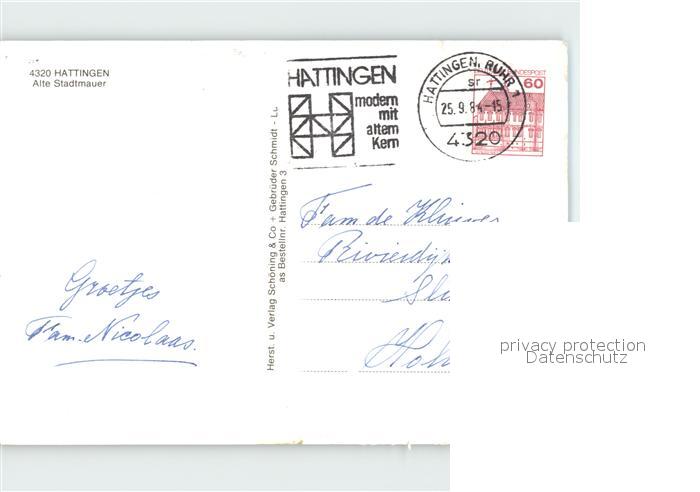 4320 HATTINGEN
Alte Stadtmauer
HATTINGEN
modern
mit
altem
Kern
HATTINGEN, RUHR 1
sr
25.9.84-15
4320
60
Herst. u. Verlag Schöning & Co + Gebrüder Schmidt -
as Bestellnr. Hattingen 3
Fam de
Groetjes
Fam. Nicolaas.
privacy protection
Datenschutz